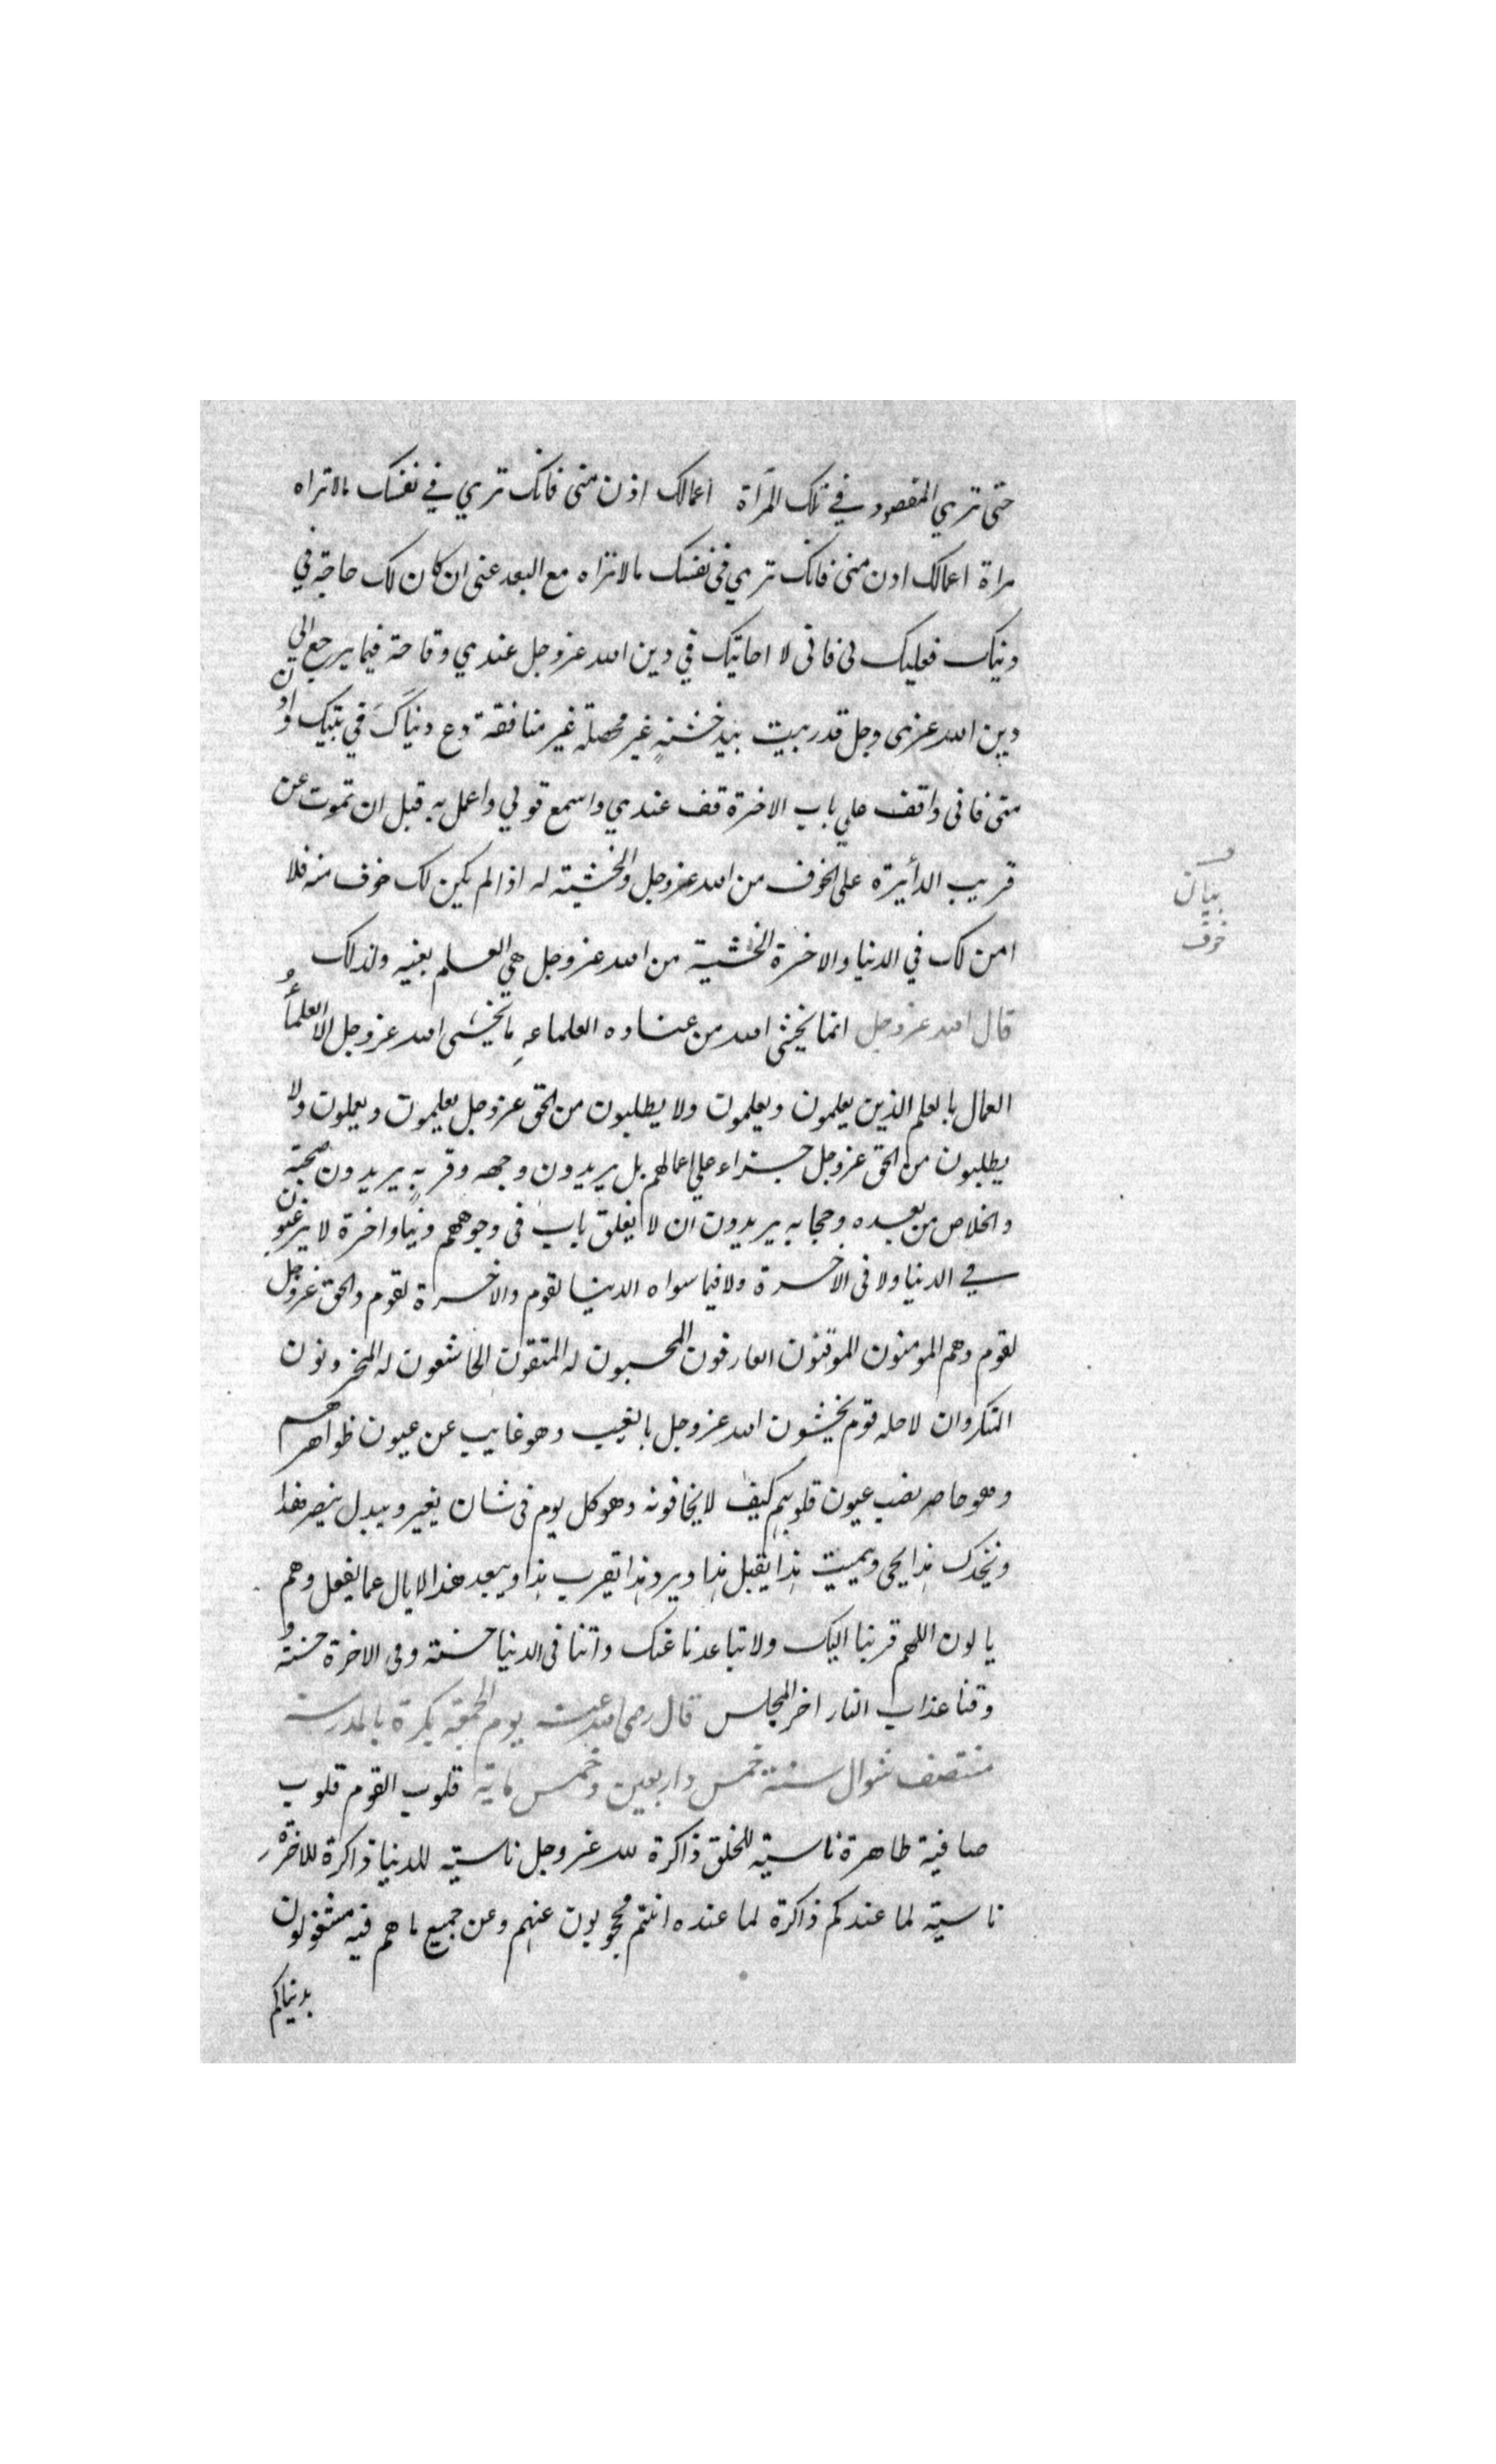 حتى تري المقصود في تلك المرآة اعمالك اذن منى فانك تري في نفسك مالاتراه
مراة اعمالك ادن منى فانك تري فى نفسك مالاتراه مع البعد عنى ان كان لك حاجة في
دنياك فعليك لى فانى لا احابيك في دين الله عز وجل عندي وقاحة فيما يرجع الي
دين الله عزى وجل قد ربيت بيد خشنةٍ غير محصلة غير منافقة دع دنياكَ في بيتك وادن
منى فانى واقف علي باب الاخرة قف عندي واسمع قولي واعمل به قبل ان تموت عن
قريب الدأيرة على الخوف من الله عز وجل والخشية له اذا لم يكن لك خوف منه فلا
بيان
خوف
امن لك في الدنيا والاخرة الخشية من الله عز وجل هي العلم بعينه ولذلك
قال الله عز وجل انما يخشى الله من عباده العلماء ما يخشى الله عز وجل الا العلمأُ
العمال بالعلم الذين يعلمون ويعلمون ولا يطلبون من الحق عز وجل يعلمون ويعملون ولا
يطلبون من الحق عز وجل جزاء علي اعمالهم بل يريدون وجهه وقربه يريدون محبته
والخلاص من بعده وحجابه يريدون ان لا يغلق باب فى وجوههم دنيا واخرة لا يرغبون
في الدنيا ولا فى الاخرة ولا فيما سواه الدنيا لقوم والاخرة لقوم والحق عز وجل
لقوم وهم المومنون الموقنون العارفون المحبون له المتقون الخاشعون له المحزونون
المنكروان لاجله قوم يخشون الله عز وجل بالغيب وهو غايب عن عيون ظواهرهم
وهو حاضر نصب عيون قلوبهم كيف لا يخافونه وهو كل يوم فى شان يغير ويبدل ينصر هذا
ويخذل هذا يحى ويميت هذا يقبل هذا ويرد هذا يقرب هذا ويبعد هذا لا يال عما يفعل وهم
يالون اللهم قربنا اليك ولا تباعدنا عنك واتنا فى الدنيا حسنة وفى الاخرة حسنة و
وقنا عذاب النار اخر المجلس قال رضى الله عنه يوم الجمعة بكرة بالمدرسة
منتصف شوال سنة خمس واربعين وخمس ماية قلوب القوم قلوب
صافية طاهرة ناسية للخلق ذاكرة لله عز وجل ناسية للدنيا ذاكرة للاخرة
ناسية لما عندكم ذاكرة لما عنده انتم محجوبون عنهم وعن جميع ما هم فيه مشغولون
بدنياكم